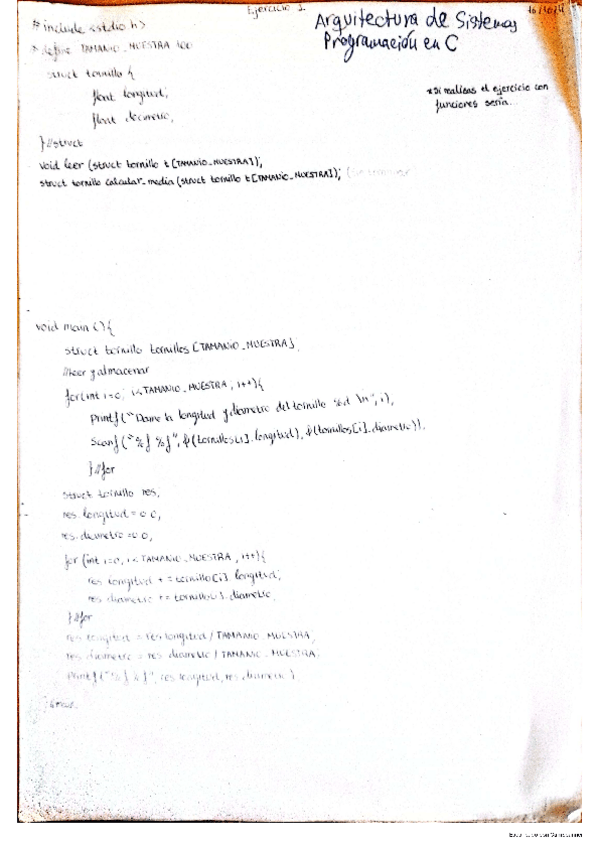 Ejercicio 1.
Arquitectura de Sistemas
Programación en C
#include <stdio.h>
#define TAMANIO_MUESTRA 100
struct tornillo {
float longitud;
float diametro;
} //struct
*Si realizas el ejercicio con
funciones sería...
void leer (struct tornillo t [TAMANIO_MUESTRA]);
struct tornillo calcular_media (struct tornillo t [TAMANIO_MUESTRA]);
void main () {
struct tornillo tornillos [TAMANIO_MUESTRA];
//leer y almacenar
for (int i=0; i<TAMANIO_MUESTRA; i++) {
printf ("Dame la longitud y diametro del tornillo %d \n", i);
scanf ("%f %f", &(tornillos[i].longitud), &(tornillos[i].diametro));
} //for
struct tornillo res;
res.longitud = 0.0;
res.diametro = 0.0;
for (int i=0; i<TAMANIO_MUESTRA; i++) {
res.longitud += tornillo[i].longitud;
res.diametro += tornillos[i].diametro;
} //for
res.longitud = res.longitud / TAMANIO_MUESTRA;
res.diametro = res.diametro / TAMANIO_MUESTRA;
printf ("%f %f", res.longitud, res.diametro);